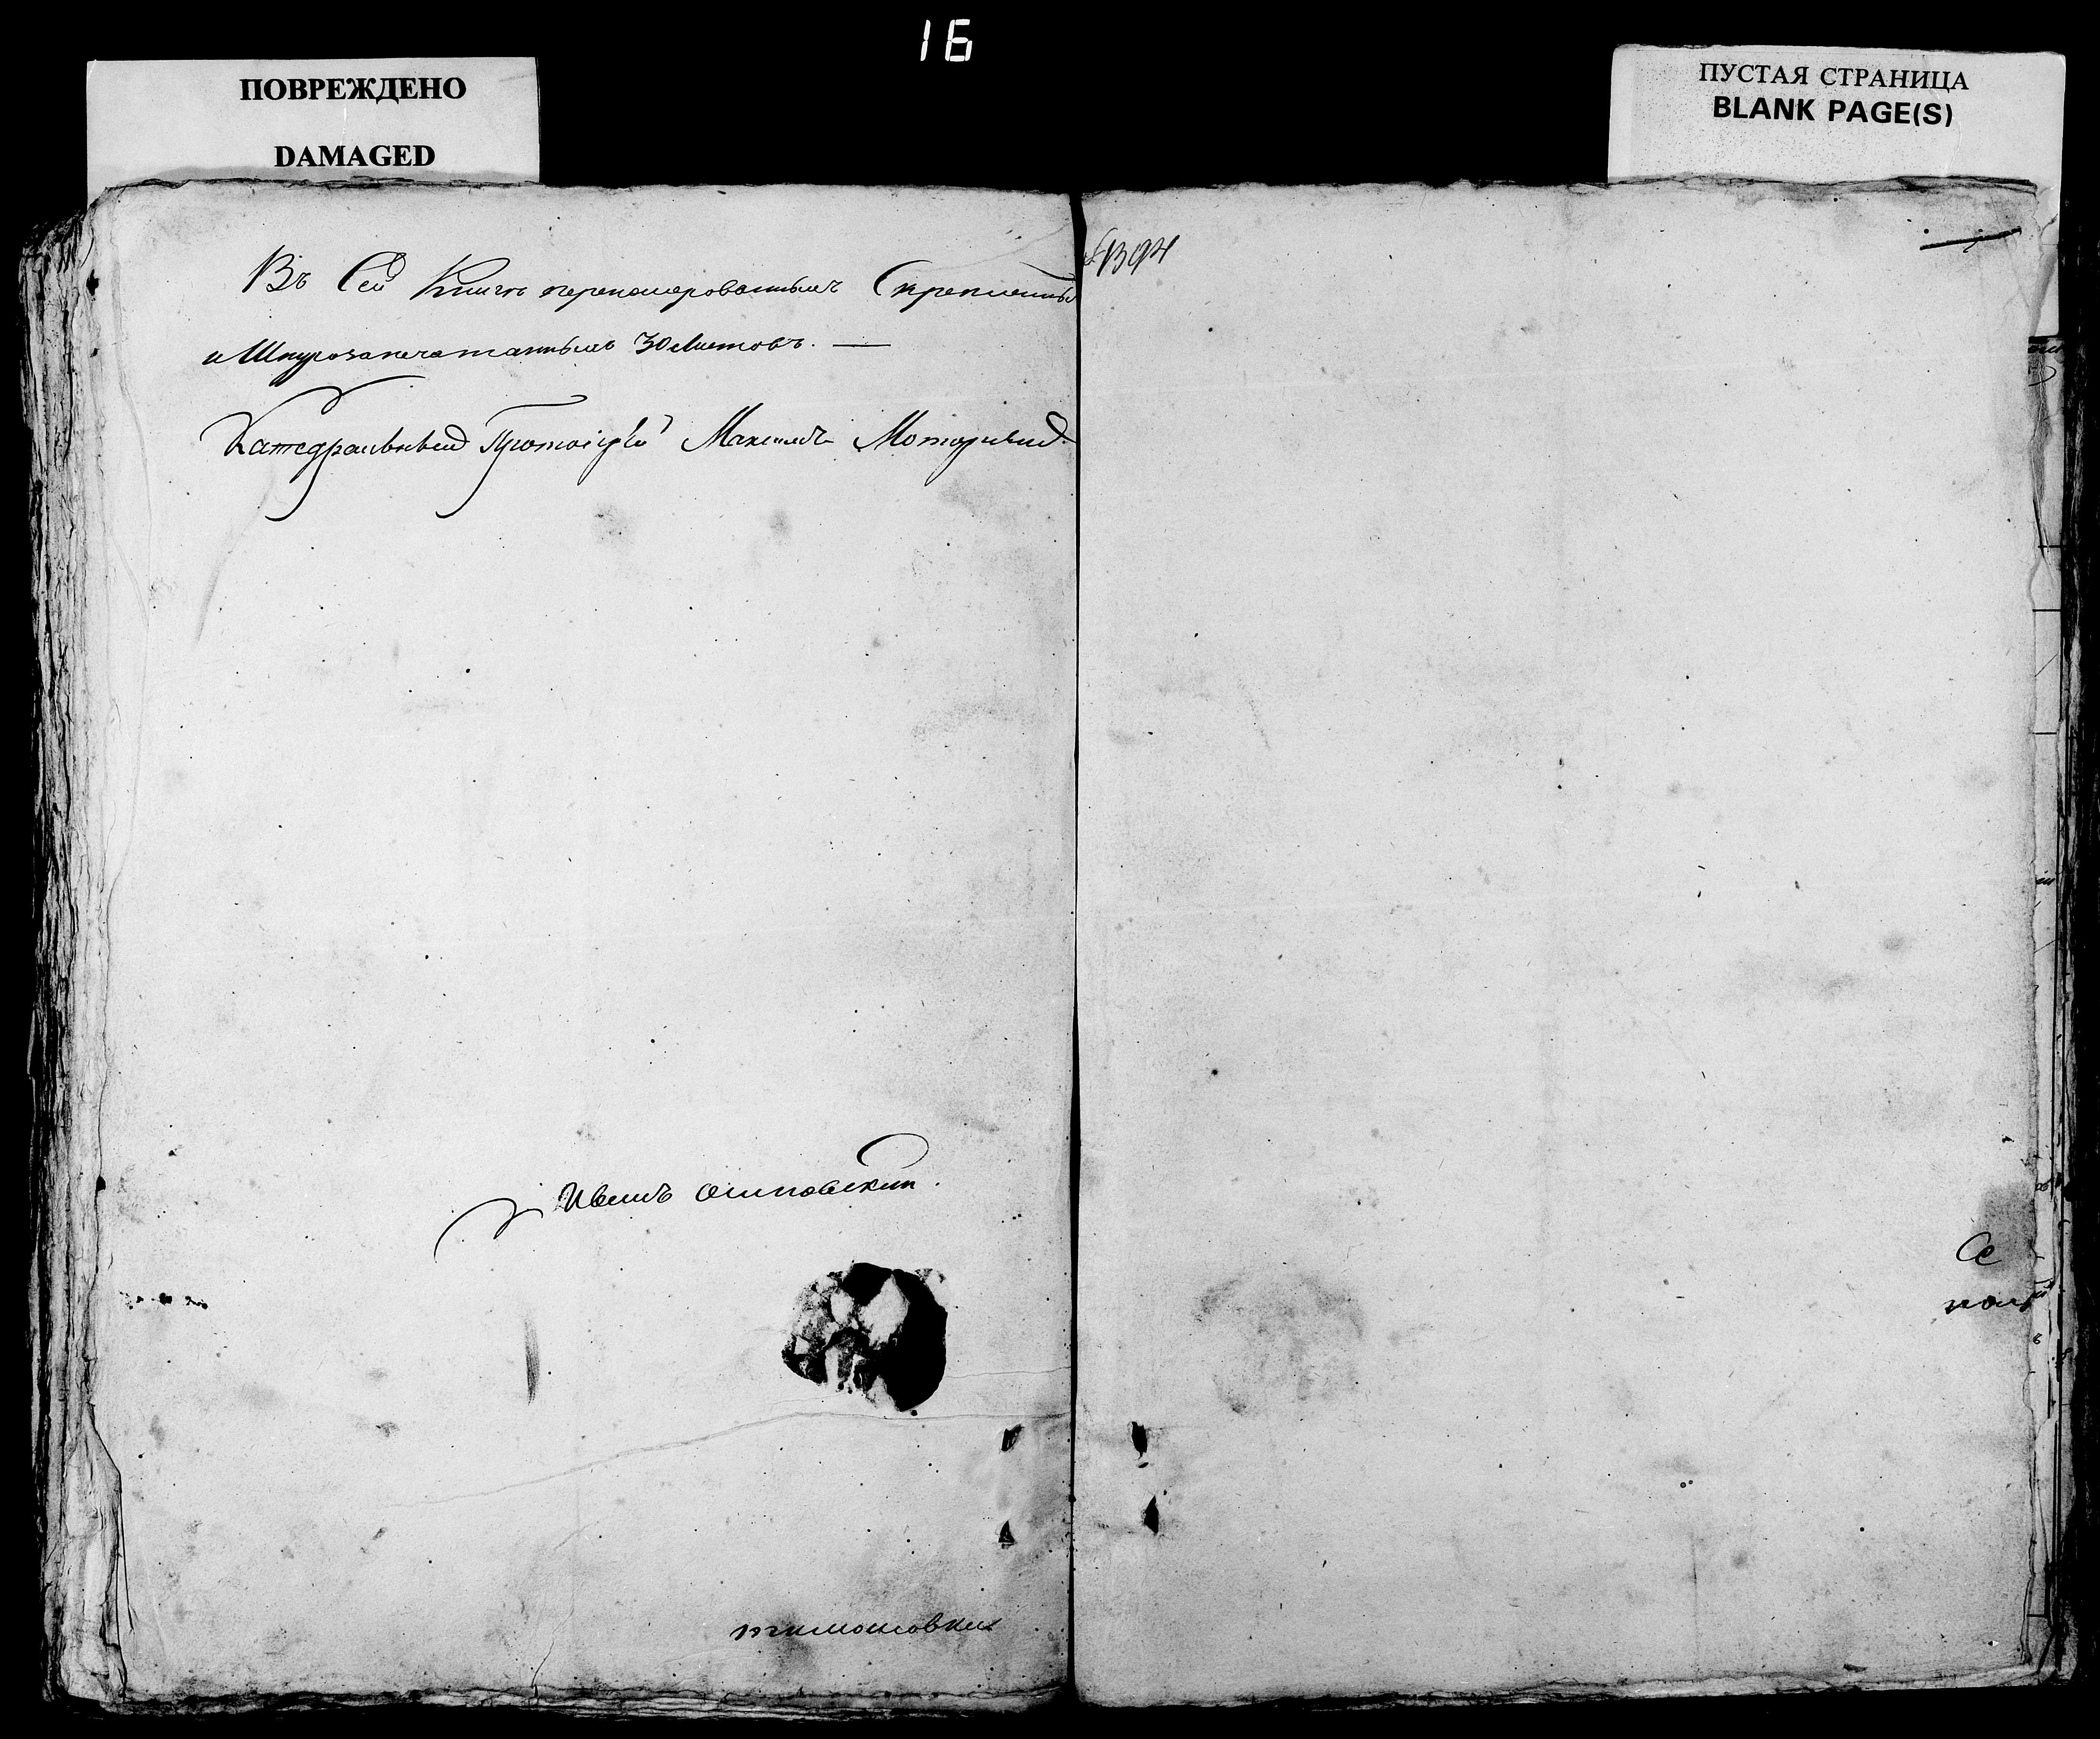 16
ПОВРЕЖДЕНО
DAMAGED
ПУСТАЯ СТРАНИЦА
BLANK PAGE(S)
Въ Сей Книгѣ переномерованныхъ Скрепленны
и Шнурозапечатанныхъ 30 листовъ. —
Катедральный Протоіерей Максимъ
Иванъ Осиповскій.
Се